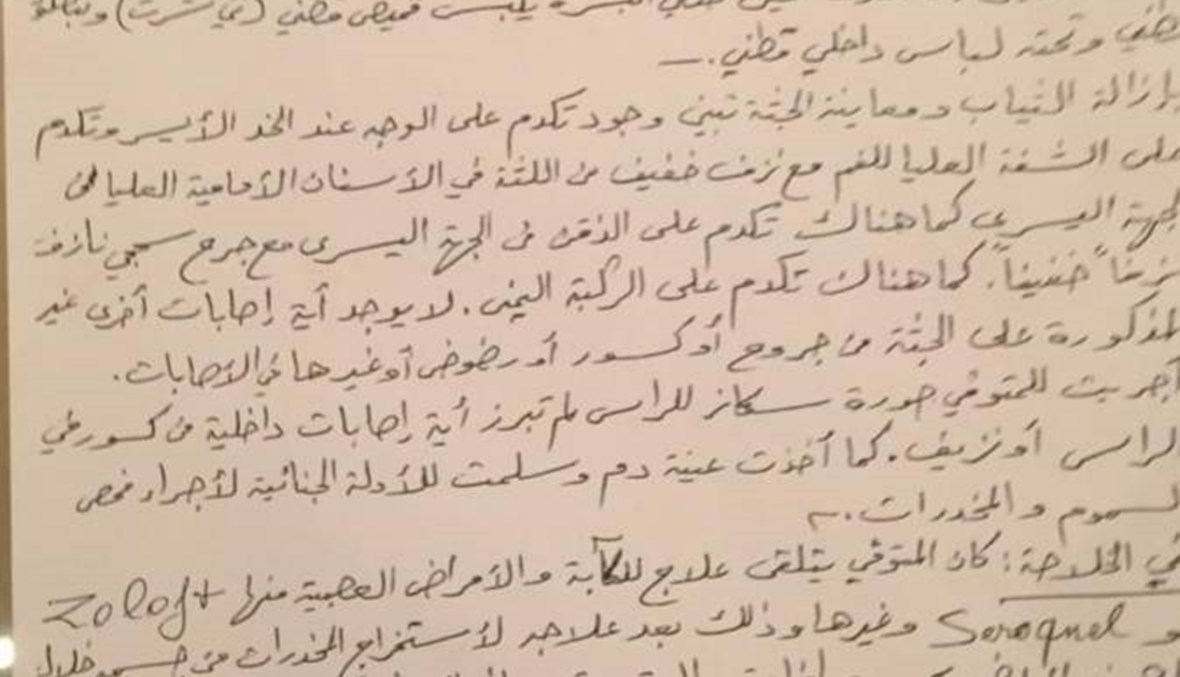 البشرة يلبس قميص قطني (تي شرت) وبنطلو
قطني وتحته لباس داخلي قطني.
بإزالة الثياب ومعاينة الجثة تبين وجود تكدم على الوجه عند الخد الأيسر وتكدم
على الشفة العليا للفم مع نزف خفيف من اللثة في الأسنان الأمامية العليا من
لجهة اليسرى كما هناك تكدم على الذقن من الجهة اليسرى مع جرح سحجي نازف
نزفاً خفيفاً. كما هناك تكدم على الركبة اليمنى. لا يوجد أية إصابات أخرى غير
لمذكورة على الجثة من جروح أو كسور أو رضوض أو غيرها من الاصابات.
أجريت للمتوفي صورة سكانر للراس لم تبرز أية إصابات داخلية من كسور في
لراس أو نزيف. كما أخذت عينة دم وسلمت للأدلة الجنائية لأجراء فحص
لسموم والمخدرات.
في الخلاصة: كان المتوفي يتلقى علاج للكآبة والأمراض العصبية منها Zoloft
و Seroquel وغيرها وذلك بعد علاجه لأستخراج المخدرات من جسمه خلال